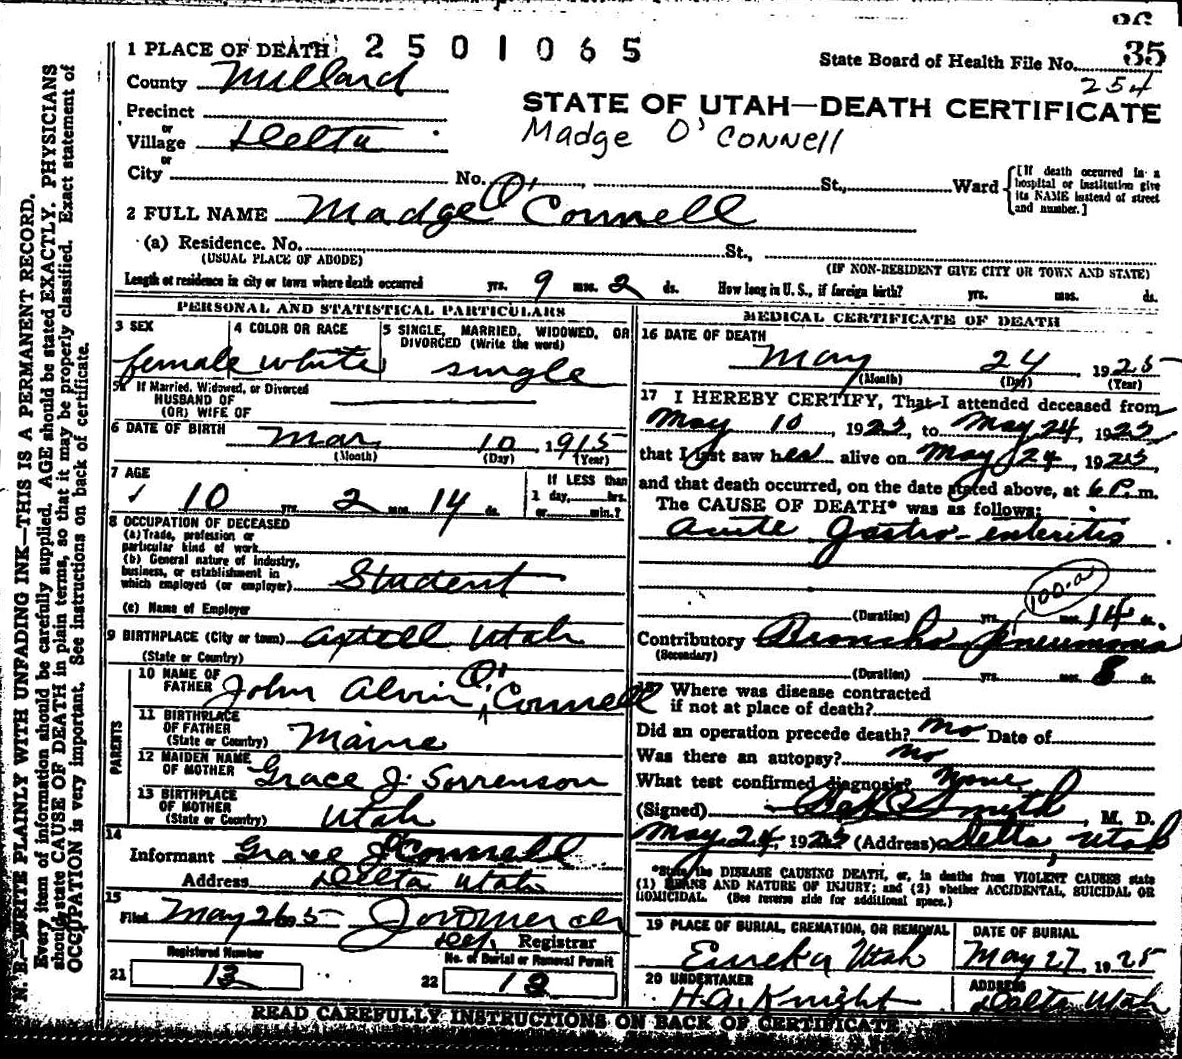 1 PLACE OF DEATH 2501065
State Board of Health File No. 35
254
County Millard
STATE OF UTAH—DEATH CERTIFICATE
Precinct
or
Village Delta
Madge O'Connell
or
City No. St., Ward [If death occurred in a hospital or institution give its NAME instead of street and number.]
2 FULL NAME Madge O'Connell
(a) Residence. No. St.,
(USUAL PLACE OF ABODE) (IF NON-RESIDENT GIVE CITY OR TOWN AND STATE)
Length of residence in city or town where death occurred yrs. 9 mos. 2 ds. How long in U. S., if foreign birth? yrs. mos. ds.
PERSONAL AND STATISTICAL PARTICULARS
3 SEX 4 COLOR OR RACE 5 SINGLE, MARRIED, WIDOWED, OR DIVORCED (Write the word)
female white single
5a If Married, Widowed, or Divorced
HUSBAND OF
(OR) WIFE OF
6 DATE OF BIRTH Mar 10, 1915
(Month) (Day) (Year)
7 AGE If LESS than
1 day, hrs.
10 yrs. 2 mos. 14 ds. or min.?
8 OCCUPATION OF DECEASED
(a) Trade, profession or
particular kind of work
(b) General nature of industry,
business, or establishment in
which employed (or employer) Student
(c) Name of Employer
9 BIRTHPLACE (City or town) Axtell Utah
(State or Country)
PARENTS
10 NAME OF
FATHER John Alvin O'Connell
11 BIRTHPLACE
OF FATHER
(State or Country) Maine
12 MAIDEN NAME
OF MOTHER Grace J. Sorrenson
13 BIRTHPLACE
OF MOTHER
(State or Country) Utah
14
Informant Grace J O'Connell
Address Delta Utah
15
Filed May 26
Registrar
Registered Number No. of Burial or Removal Permit
21 12 22 12
MEDICAL CERTIFICATE OF DEATH
16 DATE OF DEATH
May 24 1925
(Month) (Day) (Year)
17 I HEREBY CERTIFY, That I attended deceased from
May 10, 1925, to May 24, 1925
that I last saw her alive on May 24, 1925
and that death occurred, on the date stated above, at 6 P. m.
The CAUSE OF DEATH* was as follows:
Acute Gastro-enteritis
(Duration) yrs. mos. 14 ds.
Contributory Broncho pneumonia
(Secondary)
(Duration) yrs. mos. 8 ds.
Where was disease contracted
if not at place of death?
Did an operation precede death? No Date of
Was there an autopsy? No
What test confirmed diagnosis? None
(Signed) Smith, M. D.
May 24, 1925 (Address) Delta, Utah
*State the DISEASE CAUSING DEATH, or, in deaths from VIOLENT CAUSES state
(1) MEANS AND NATURE OF INJURY; and (2) whether ACCIDENTAL, SUICIDAL OR
HOMICIDAL. (See reverse side for additional space.)
19 PLACE OF BURIAL, CREMATION, OR REMOVAL DATE OF BURIAL
Eureka Utah May 27 1925
20 UNDERTAKER ADDRESS
H. A. Knight Delta Utah
READ CAREFULLY INSTRUCTIONS ON BACK OF CERTIFICATE
N. B.—WRITE PLAINLY WITH UNFADING INK—THIS IS A PERMANENT RECORD.
Every item of information should be carefully supplied. AGE should be stated EXACTLY. PHYSICIANS
should state CAUSE OF DEATH in plain terms, so that it may be properly classified. Exact statement of
OCCUPATION is very important. See instructions on back of certificate.